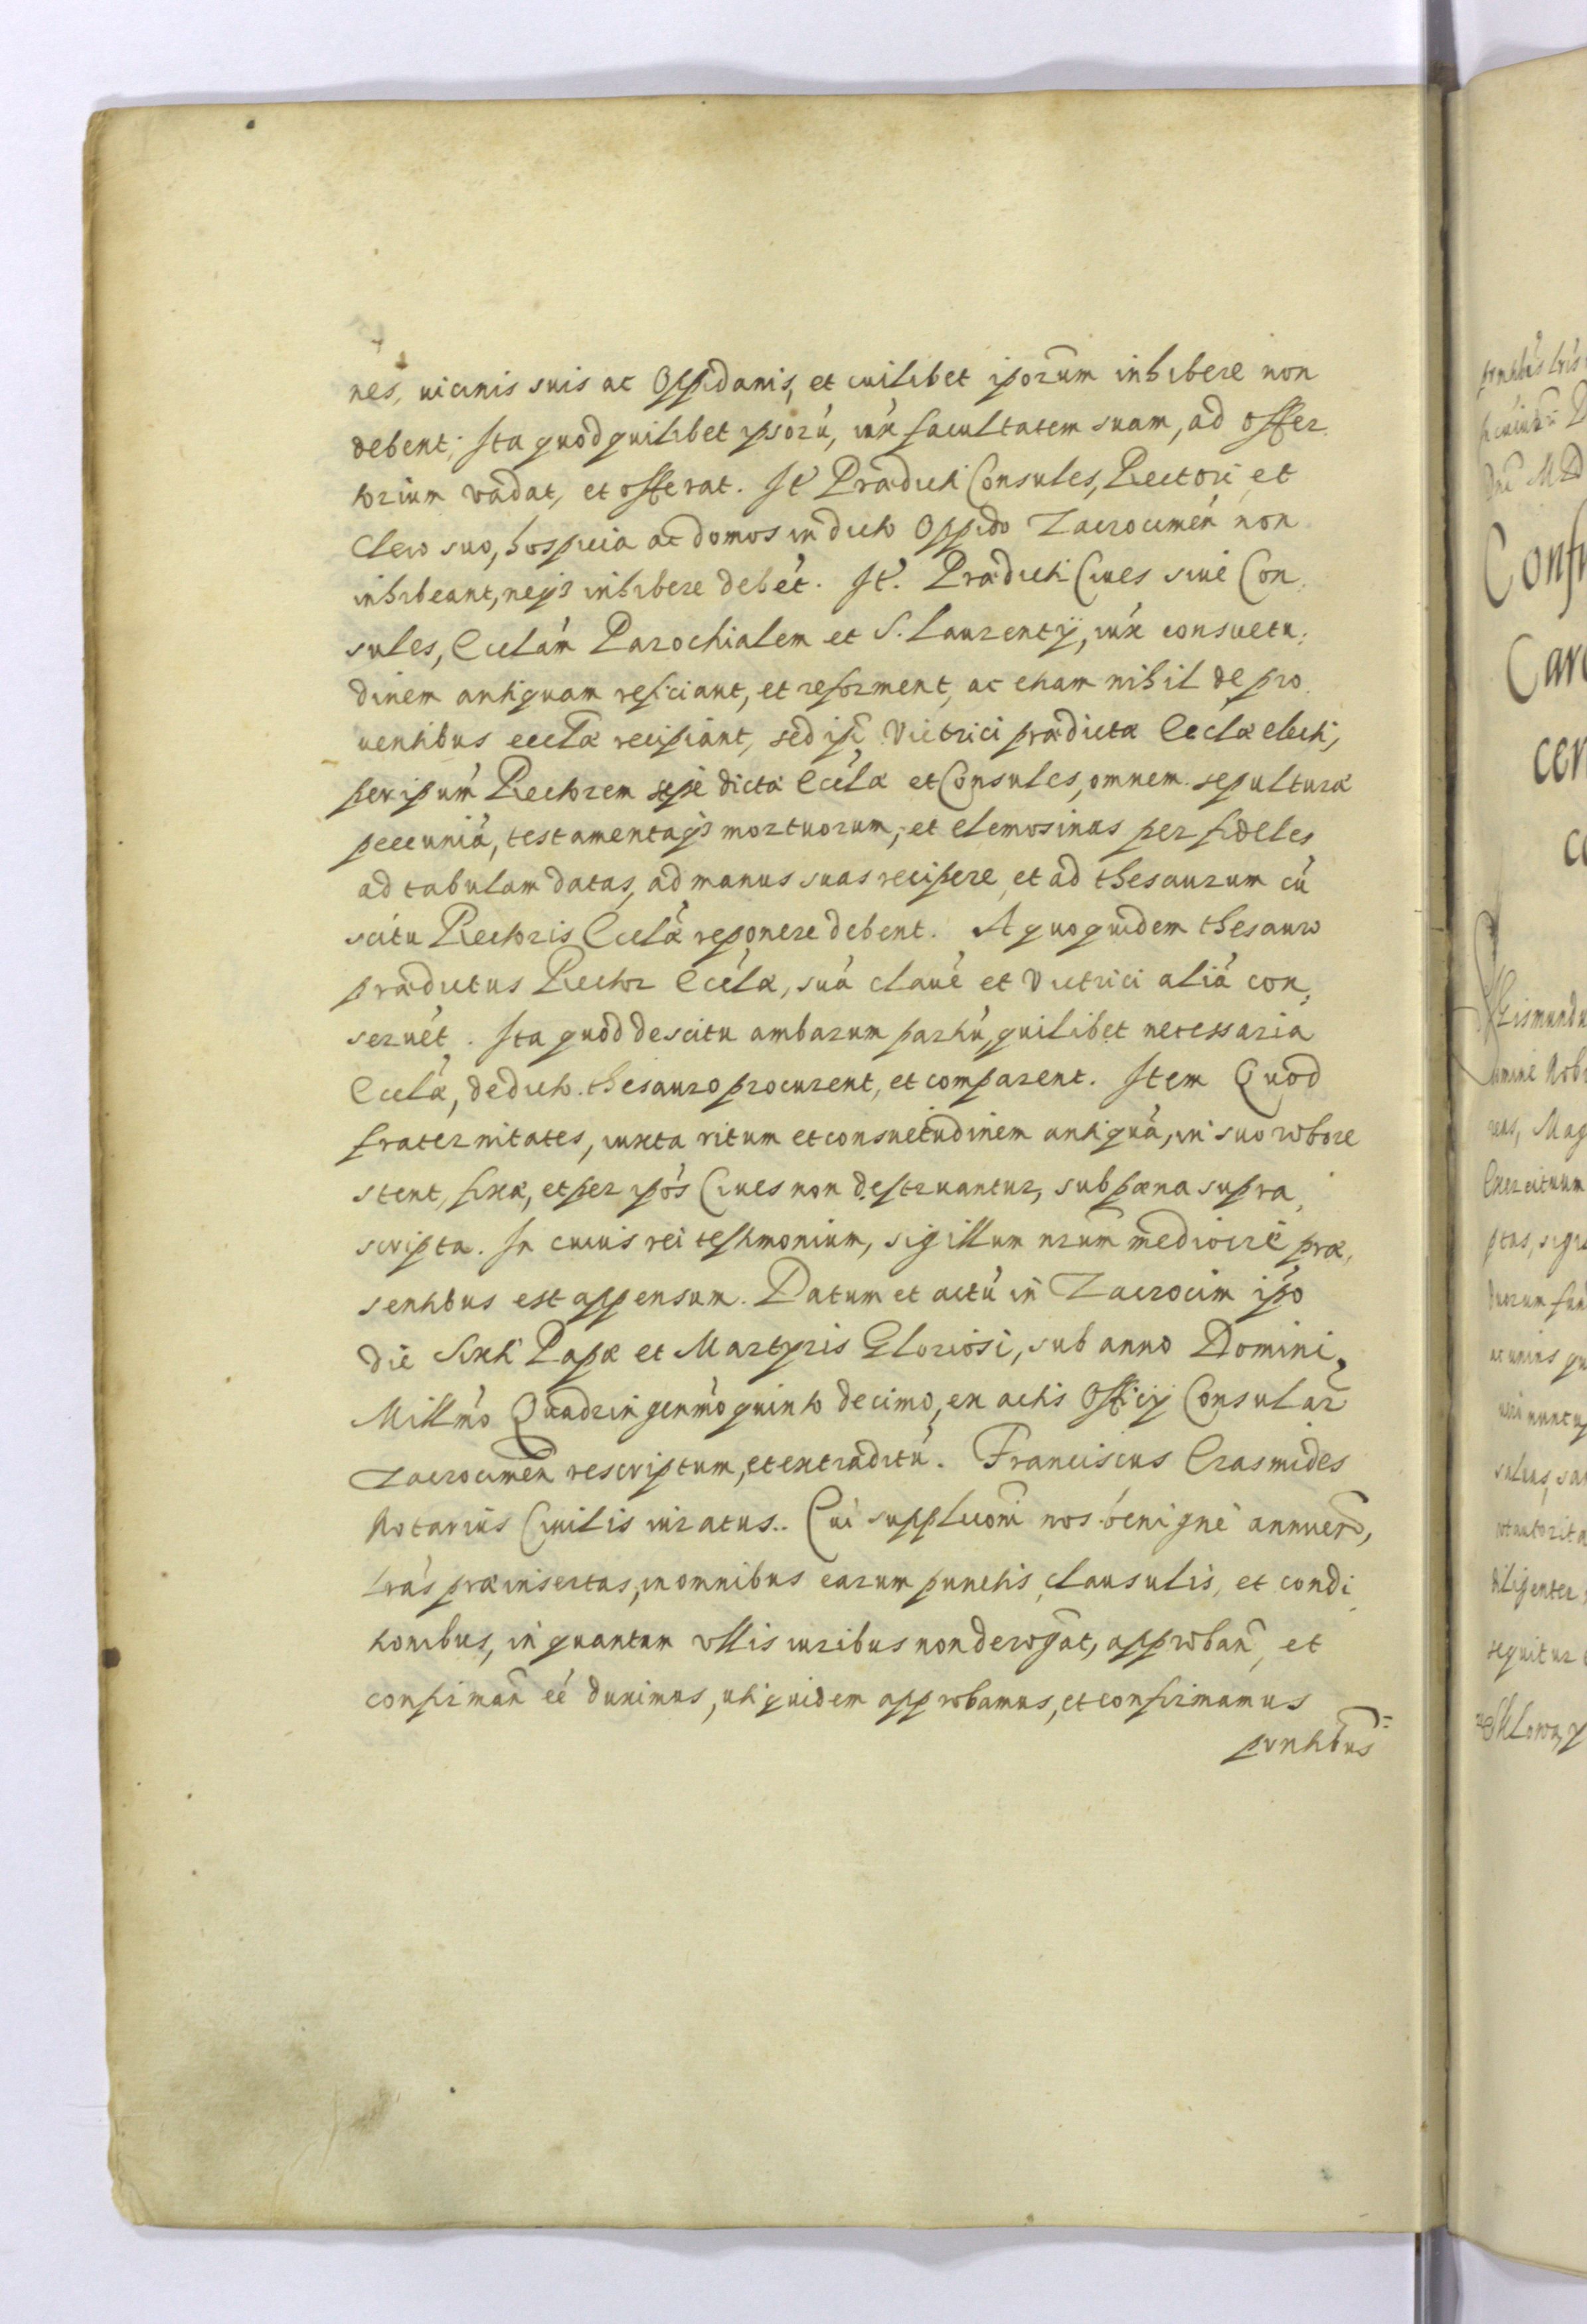 nes, uicinis suis ac Oppidanis, et cuilibet iporum inhibere non
debent; Ita quod quilibet ipsorú, iux facultatem suam, ad offer
torium vadat, et offerat. It Prædicti Consules, Rectori et
Clero suo, hospicia ac domos in dicto Oppido Zacrocimeń non
inhibeant, neqз inhibere debét. It. Prædicti Ciues siue Con
sules, Ecclám Parochialem et S. Laurentÿ, iux consuetu
dinem antiquam reficiant, et reforment, ac etiam nihil de pro
uentibus ecclæ recipiant, sed ipi Victrici prædictæ Ecclæ electi,
per ipum Rectorem sepe dictæ Ecclæ et Consules, omnem sepulturæ
pecuniá, testamentaqз mortuorum, et elemosinas per fideles
ad tabulam datas, ad manus suas recipere, et ad thesaurum cú
scitu Rectoris Ecclæ reponere debent. A quo quidem thesauro
prædictus Rector Ecclæ, suá claué et Victrici aliá con
seruét. Ita quod de scitu ambarum partiú, quilibet necessaria
Ecclæ, de dicto thesauro procurent, et comparent. Item Quod
fraternitates, iuxta ritum et consuetudinem antiquá, in suo robore
stent, fixæ, et per ipos Ciues non destruantur, sub pæna supra
scripta. In cuius rei testimonium, sigillum nrum mediocre præ
sentibus est appensum. Datum et actú in Zacrocim ipo
die Sixti Papæ et Martyris Gloriosi, sub anno Domini
Millmo Quadringenmo quinto decimo, ex actis Officÿ Consular
Zacrocimeń rescriptum, et extraditú. Franciscus Erasmides
Notarius Ciuilis iuratus. Cui supplicõni nos benigne annuen,
lras præinsertas, in omnibus earum punctis, clausulis, et condi
tionibus, in quantum vllis iuribus non derogat, approban, et
confirman eé duximus, uti quidem approbamus, et confirmamus
prntibus